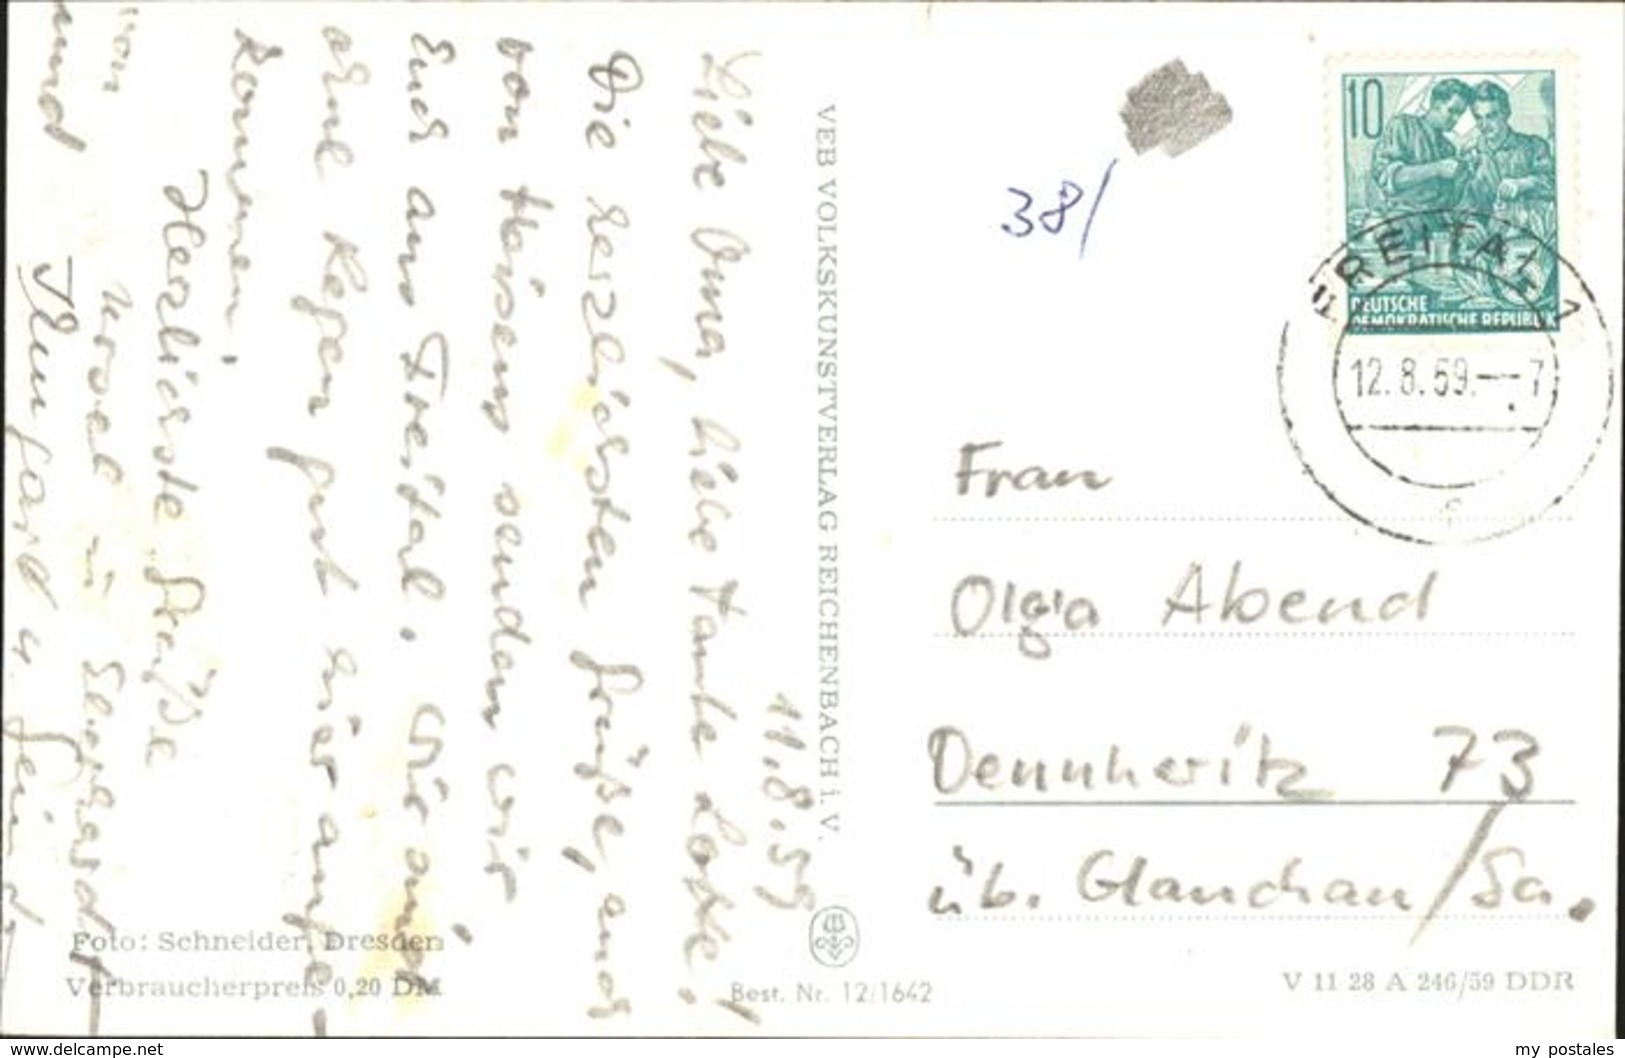 11.8.59
Liebe Oma, liebe Tante Lotte!
Die herzlichsten Grüße, auch
von Heisens senden wir
Euch aus Freital. Wir sind
ohne Regen gut hier ange-
kommen.
Herzlichste Grüße
von Ursel u. Eberhardt
und
VEB VOLKSKUNSTVERLAG REICHENBACH i. V.
Foto: Schneider, Dresden
Verbraucherpreis 0,20 DM
Best. Nr. 12/1642
38/
10
DEUTSCHE
DEMOKRATISCHE REPUBLIK
FREITAL 1
12.8.59.—7
Frau
Olga Abend
Dennheritz 73
üb. Glauchau/Sa.
V 11 28 A 246/59 DDR
www.delcampe.net
my postales